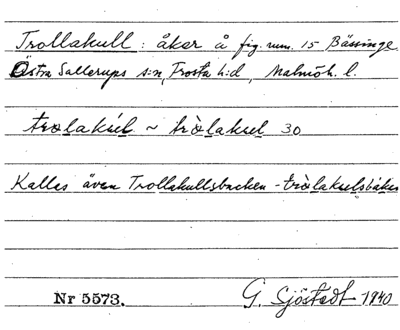 Trollakull : åker å fig. num. 15 Bässinge
Östra Sallerups s:n, Frosta h:d, Malmöh. l.
trɷlakúl ~ trɷ̀lakul 30
Kallas även Trollakullsbacken - trɷ̀lakulsbákən
Nr 5573. G. Sjöstedt 1940